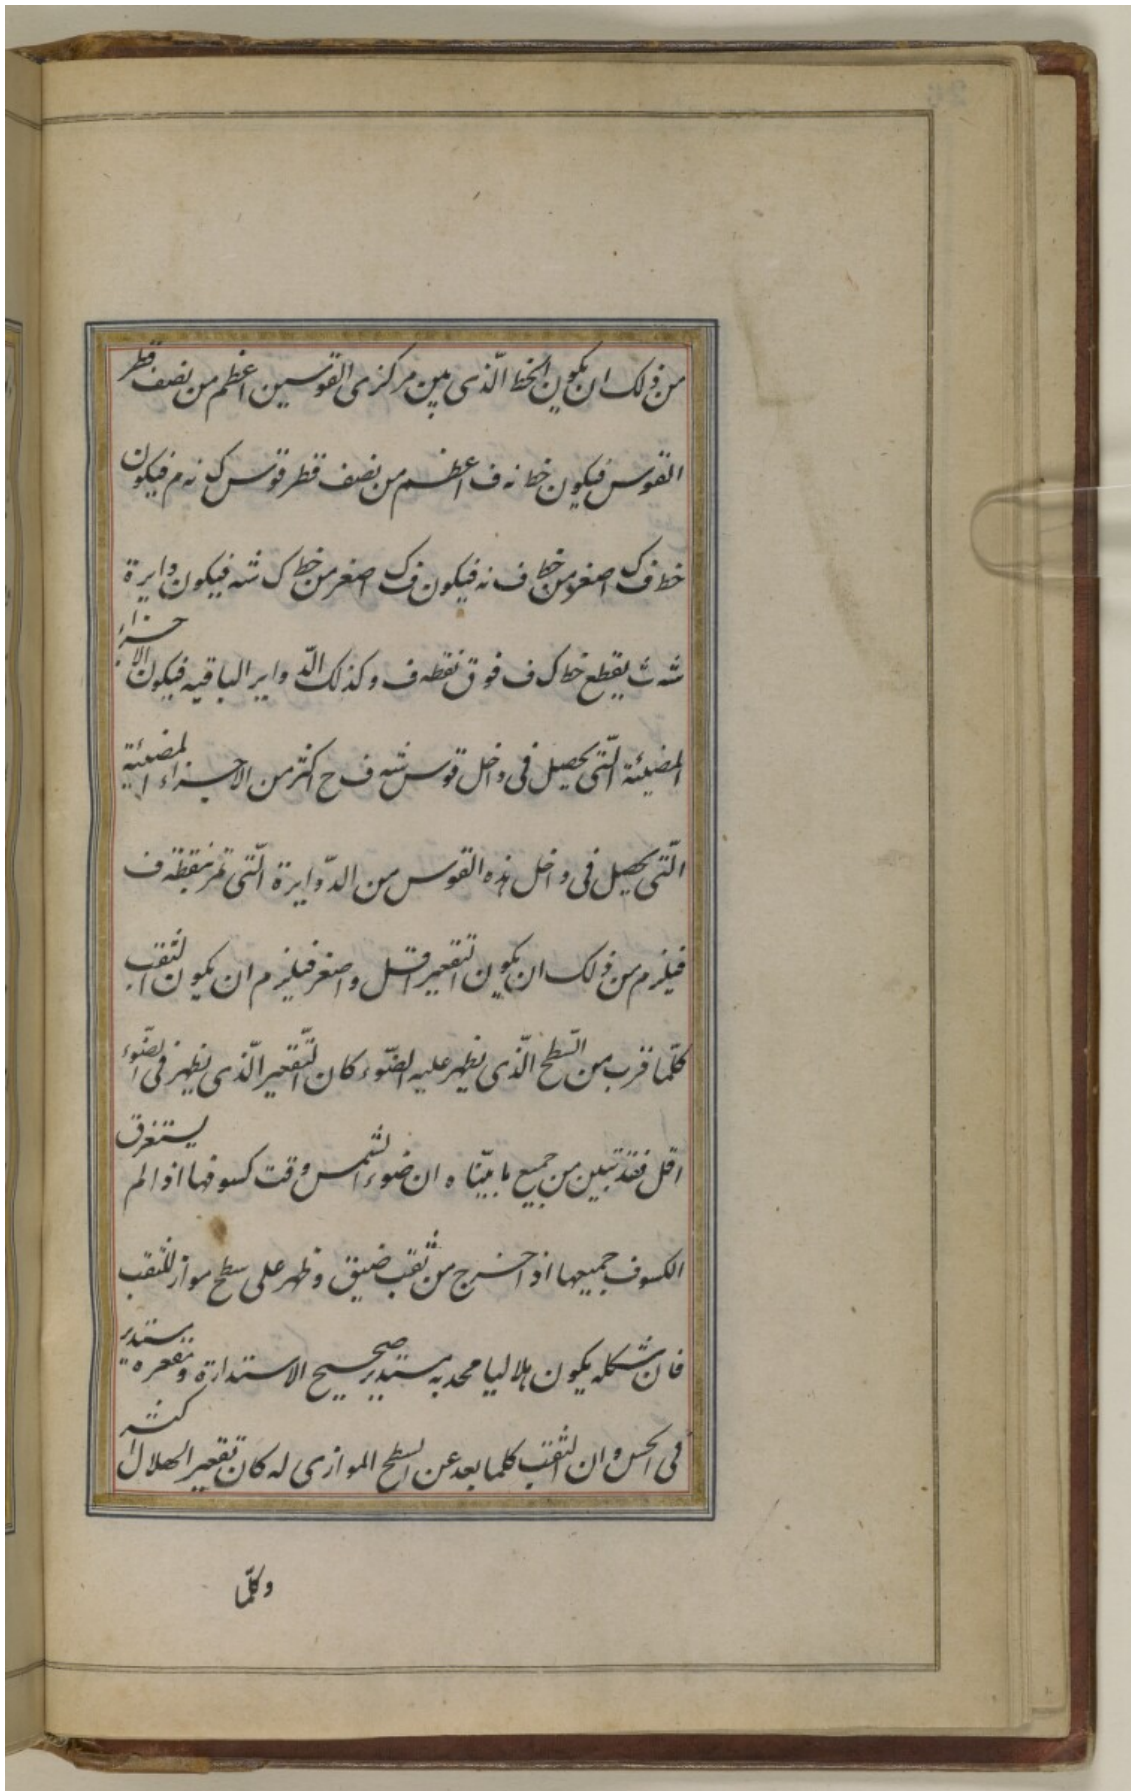 من ذلك ان يكون الخط الّذى بين مركزى القوسين اعظم من نصف قطر
القوس فيكون خط نه ف اعظم من نصف قطر قوس ك نه م فيكون
خط ف ك اصغر من خط ف نه فيكون ف ك اصغر من خط ك شه فيكون دايرة
شه ث يقطع خط ك ف فوق نقطه ف وكذلك الدّواير الباقيه فيكون الاجزاء
المضيئة الّتى يحصل فى داخل قوس شه ف ح اكثر من الاجزاء المضيئة
الّتى يحصل فى داخل هذه القوس من الدّوايرة الّتى تمر بنقطه ف
فيلزم من ذلك ان يكون التقعير اقل واصغر فيلزم ان يكون الثقب
كلّما قرب من السّطح الّذى يظهر عليه الضّوء كان التّقعير الّذى يظهر فى الضّوء
اقل فقد تبين من جميع ما بيّناه ان ضوء الشمس وقت كسوفها اذا لم يستغرق
الكسوف جميعها اذا خرج من ثقب ضيق وظهر على سطح مواز للثقب
فان شكله يكون هلاليا محدبه مستدير صحيح الاستدارة وتقعره مستدير
فى الحس وان الثقب كلما بعد عن السطح الموازى له كان تقعير الهلال اكثر
وكلّما